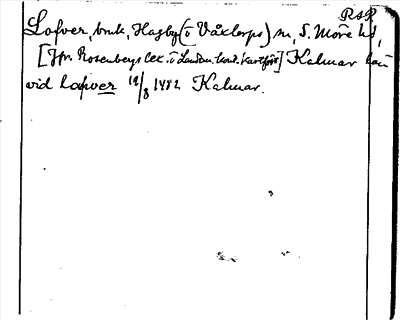 RSR
Lofver, bruk, Hagby (o Våxtorps) sn, S. Möre hd,
[Jfr. Rosenbergs lex. o Landtm. kont. kartförr] Kalmar län
vid Lofver 19/8 1482 Kalmar.